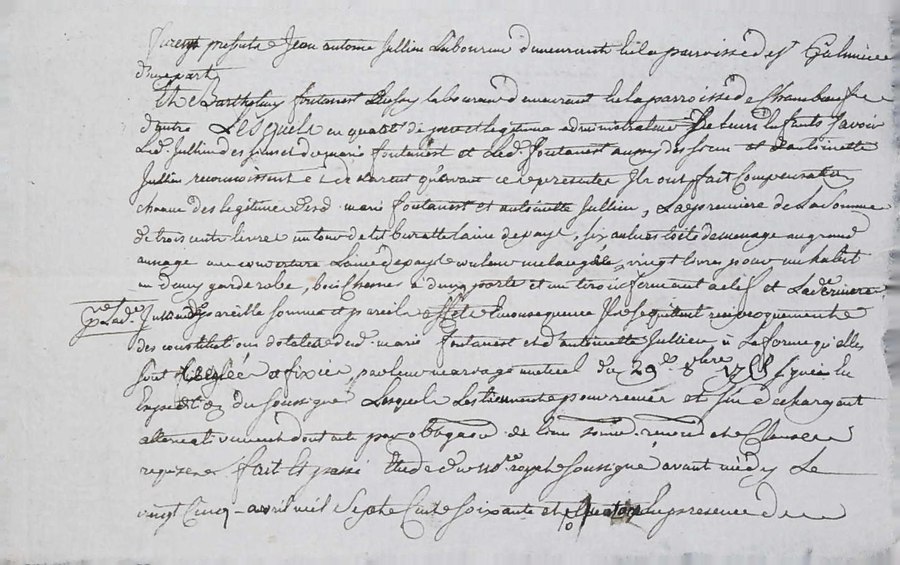 Furent presents Jean antoine Jullien Laboureur demeurant en la paroisse de st Galmier
d'une part
Et Barthelemy fontanest laboureur demeurant en la parroisse de Chambeuf
d'autre Lesquels en qualité de pere et legitime administrateur de leurs Enfants Savoir
Led. Jullien des siens et de marie fontanest et Led. fontanest aussy des siens et d'antoinette
Jullien reconnoissent et declarent qu'avant ces presentes Ils ont fait Compensation
chacun des legitimes desd. marie fontanest et antoinette Jullien, La premiere de La Somme
de trois cents livres un tour de lit buratte laine de pays, six aulnes toile de menage au grand
aunage une couverture Laine de pays couleur melangée, vingt livres pour un habit
un demy garderobe, bois Chesne a deux porte et un tiroir fermant a clef et La derniere
pr Lad.
de pareille somme et pareils effets En consequence Ils se quittent reciproquement
des constitutions dotales desd. marie fontanest et d'antoinette Jullien a La forme qu'elles
sont reglée et fixées, par leur mariage mutuel du 29e 8bre
Expedition du Soussigné Lesquels Les tiennent pour remis et s'en dechargent
alternativement dont acte par obligaon de leurs biens, renond et Clauses
requises fait et passé Etude du nore royal Soussigné avant midy Le
vingt Cinq avril mil Sept Cent Soixante et en presence de